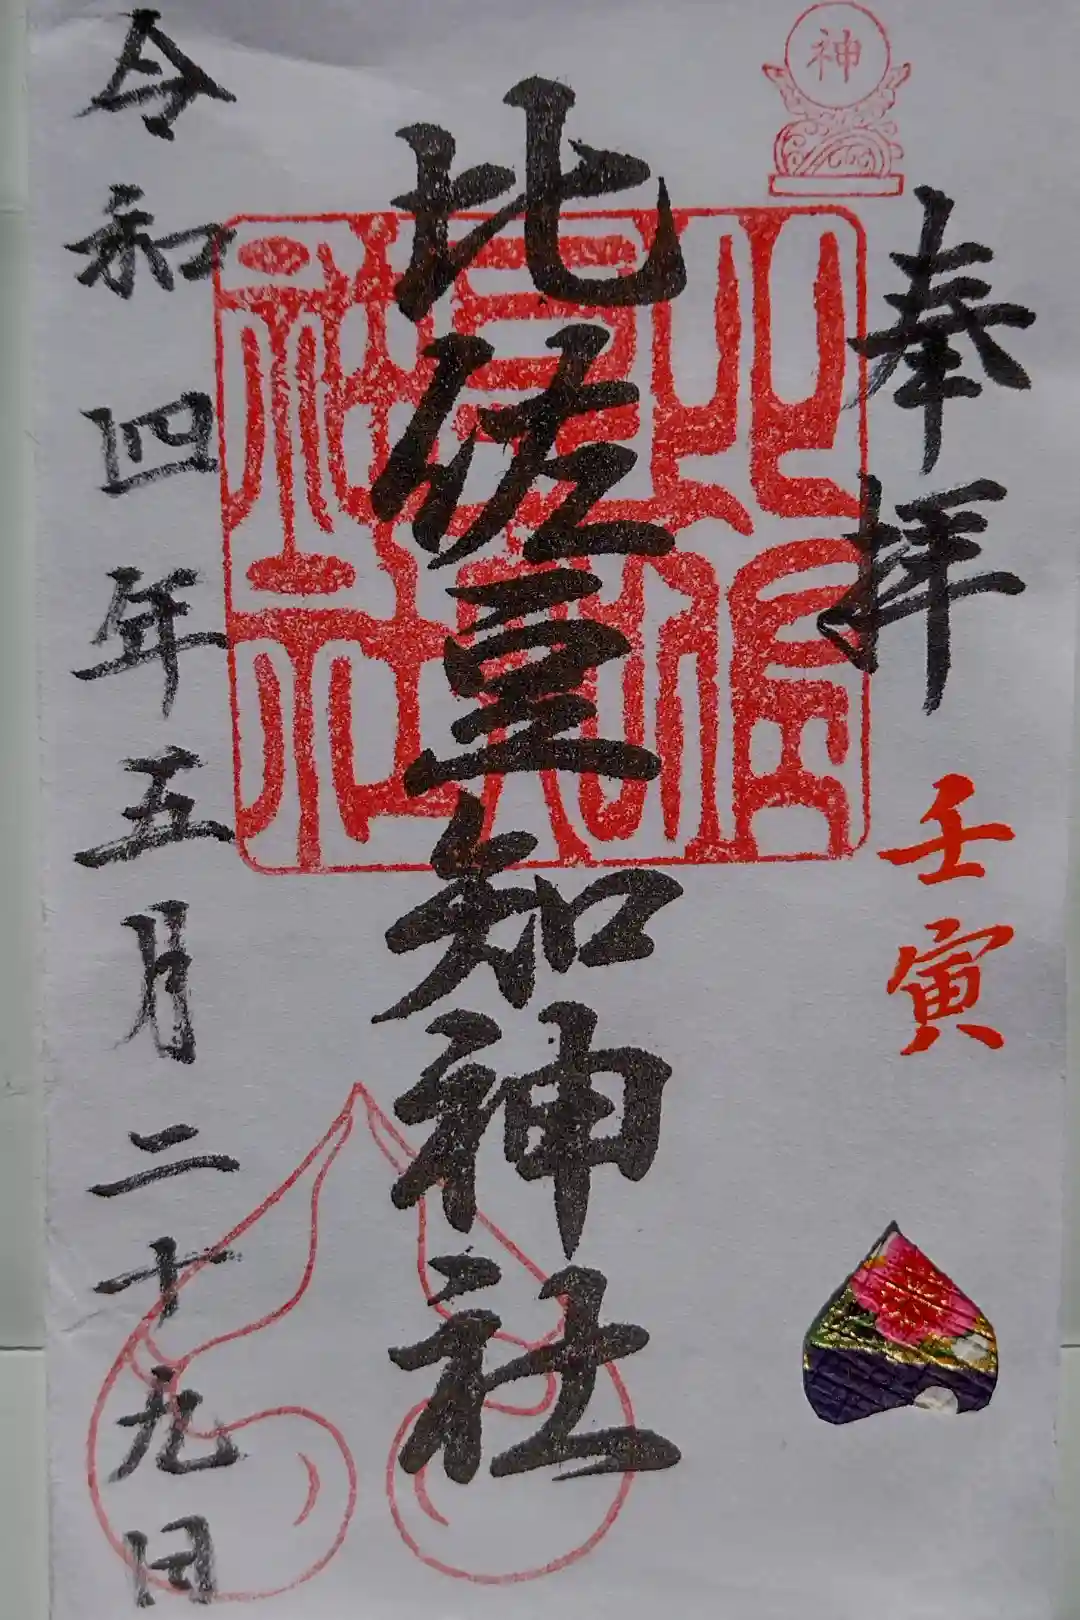 神
奉拝
壬寅
比佐豆知神社
令和四年五月二十九日